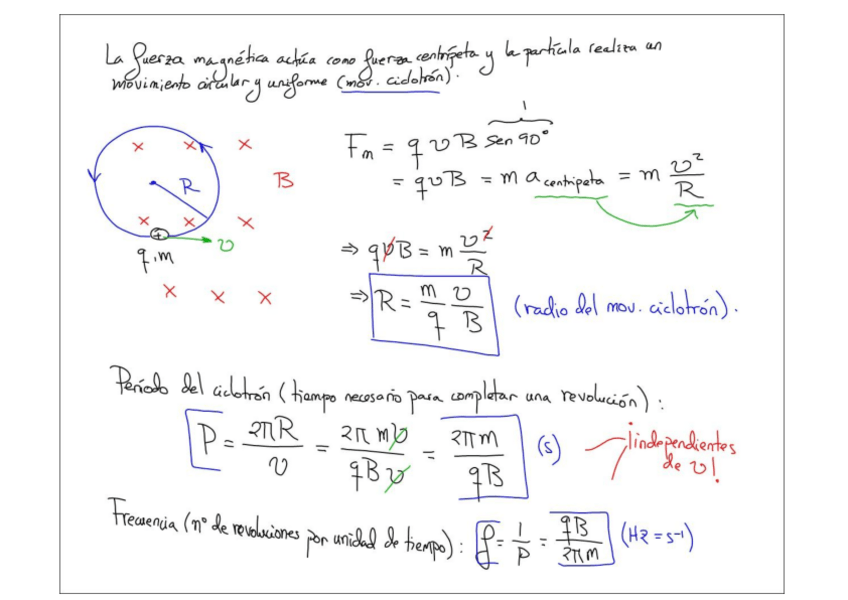 La fuerza magnética actúa como fuerza centrípeta y la partícula realiza un
movimiento circular y uniforme (mov. ciclotrón).
1
F_m = q v B sen 90°
× × ×
R
B
= q v B = m a_centrípeta = m v²/R
× × ×
+
v
q, m
⇒ q v B = m v²/R
× × ×
⇒ R = m/q v/B (radio del mov. ciclotrón).
Período del ciclotrón (tiempo necesario para completar una revolución):
P = 2πR/v = 2π m v/q B v = 2π m/q B (s)
¡independientes
de v!
Frecuencia (nº de revoluciones por unidad de tiempo): f = 1/P = qB/2πm (Hz = s⁻¹)